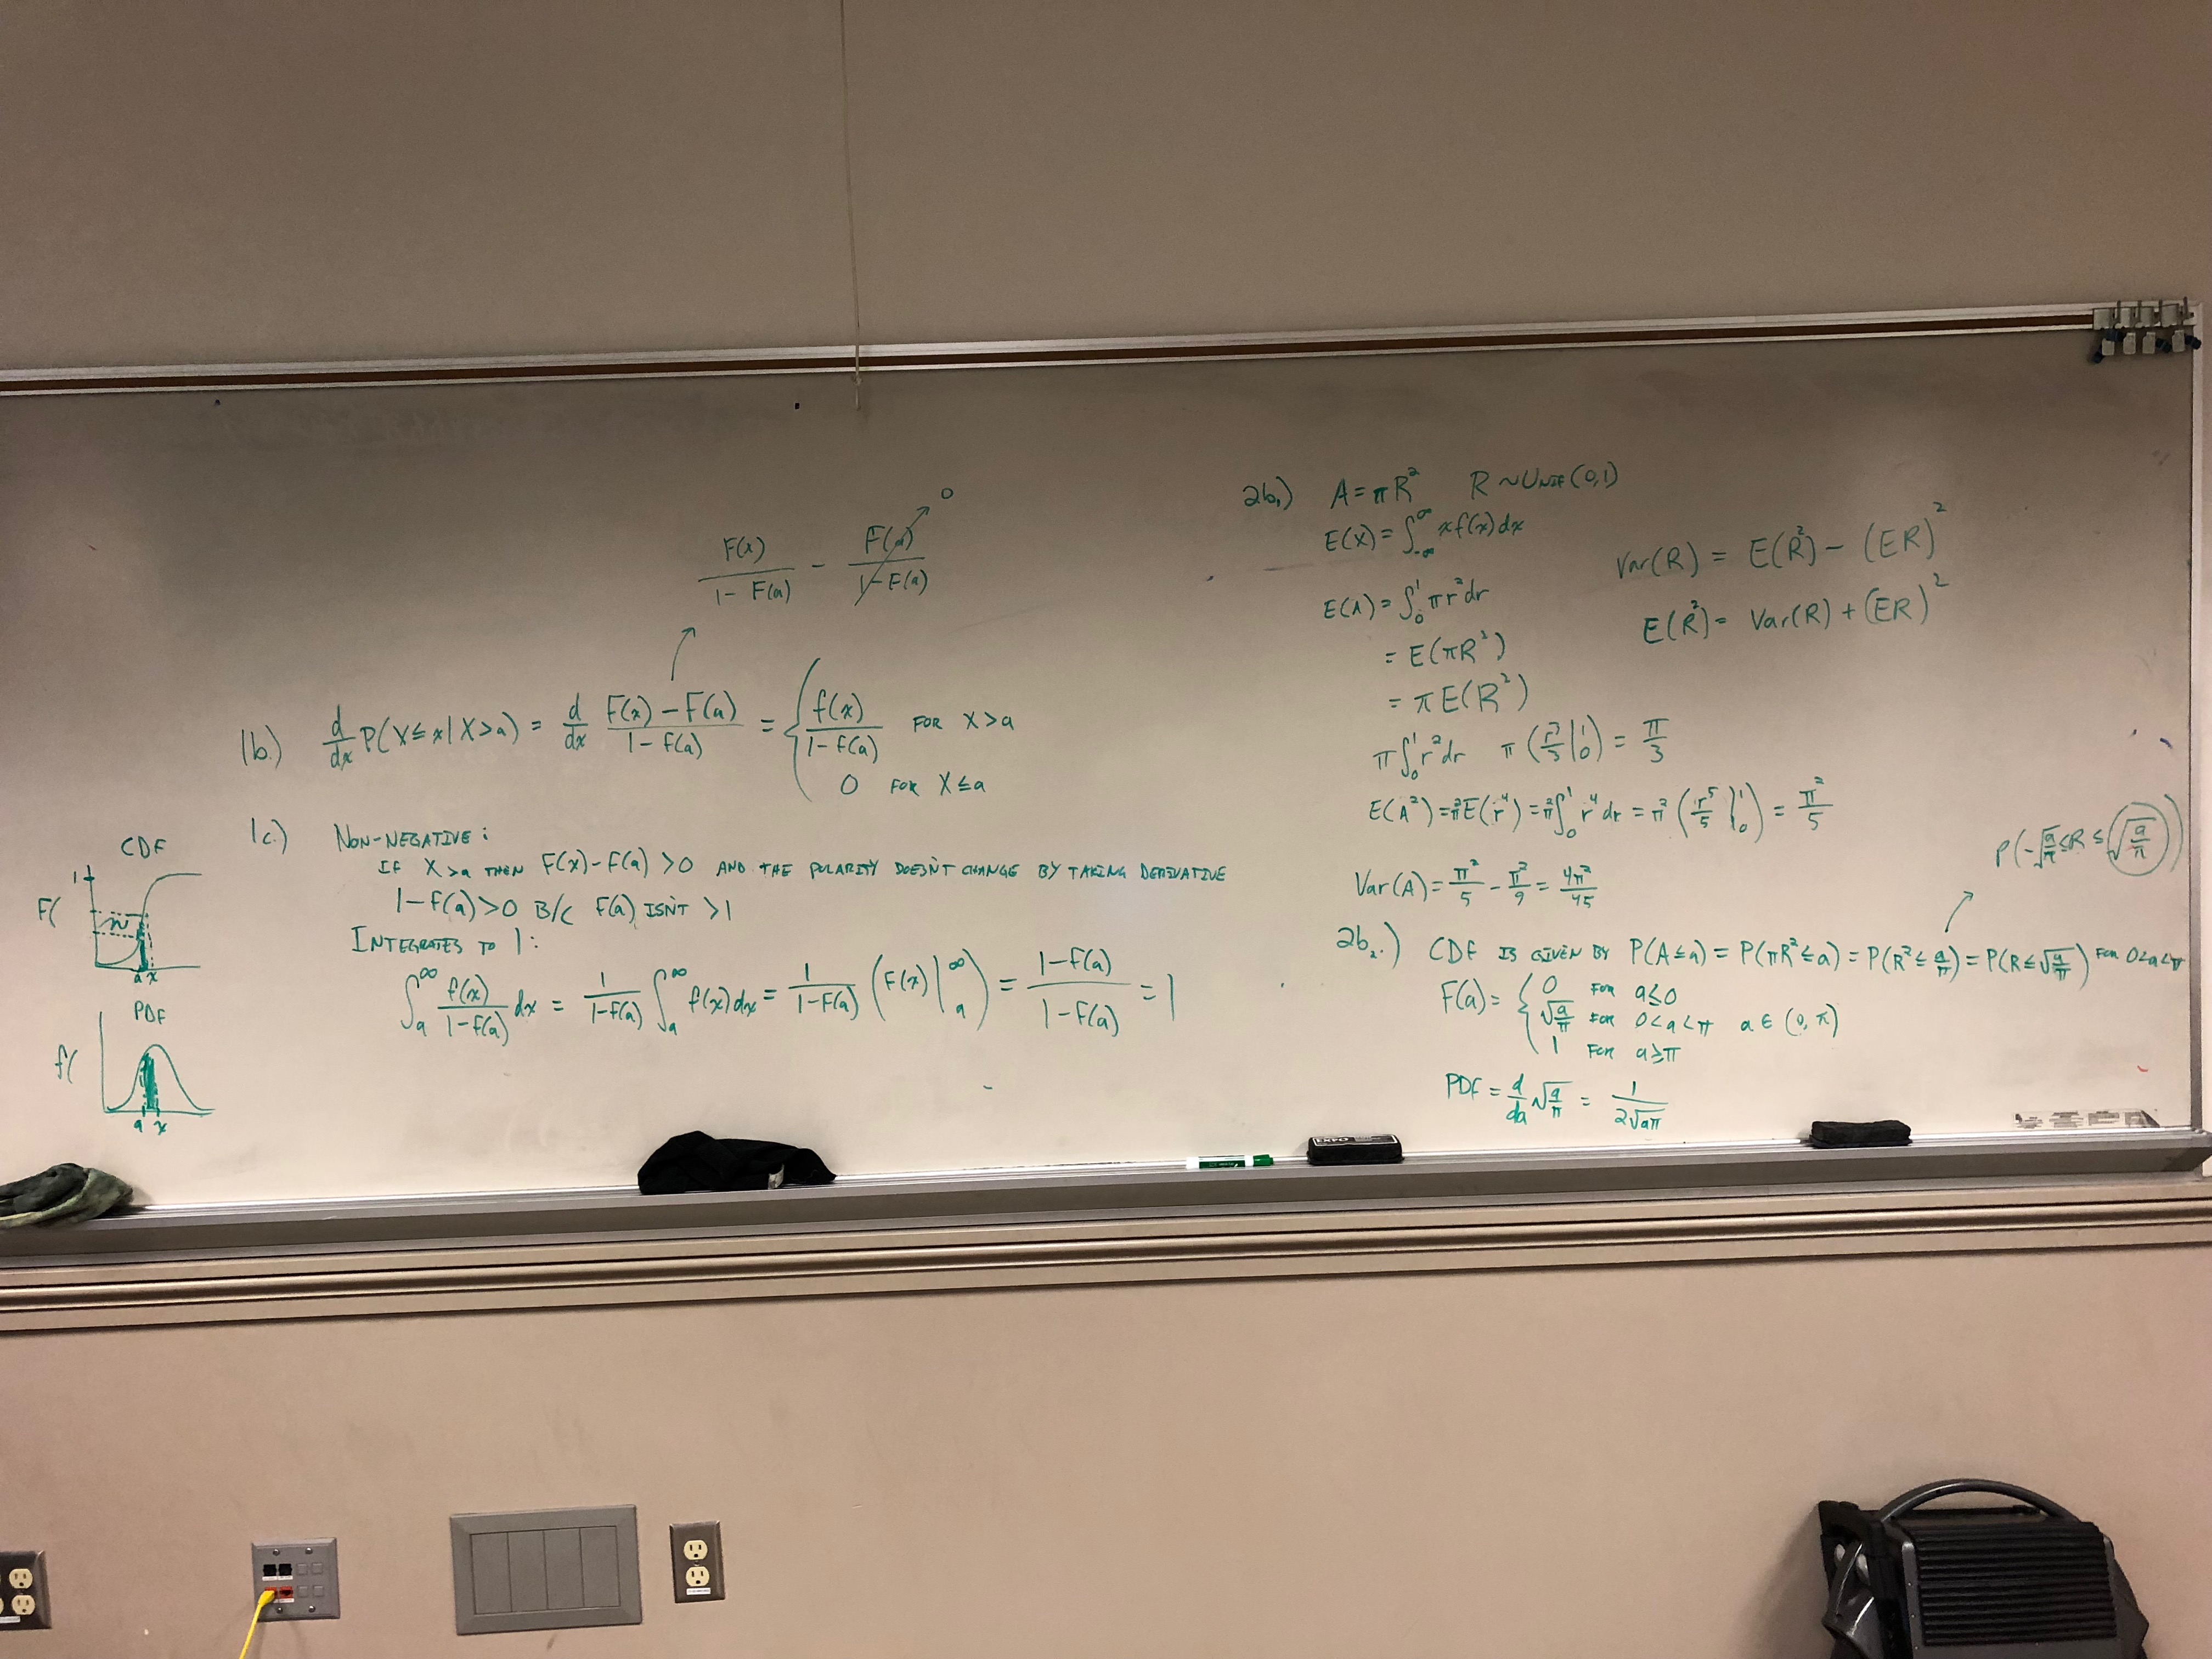 F(x)/(1 - F(a)) - F(a)/(1 - F(a)) → 0
1b.) d/dx P(X ≤ x | X > a) = d/dx (F(x) - F(a))/(1 - F(a)) = { f(x)/(1 - F(a)) FOR X > a
0 FOR X ≤ a
1c.) NON-NEGATIVE:
IF X > a THEN F(x) - F(a) > 0 AND THE POLARITY DOESN'T CHANGE BY TAKING DERIVATIVE
1 - F(a) > 0 B/C F(a) ISN'T > 1
INTEGRATES TO 1:
∫_a^∞ f(x)/(1 - F(a)) dx = 1/(1 - F(a)) ∫_a^∞ f(x) dx = 1/(1 - F(a)) (F(x) |_a^∞) = (1 - F(a))/(1 - F(a)) = 1
CDF
1
F(
a x
PDF
f(
a x
2b₁) A = πR² R ~ UNIF(0,1)
E(X) = ∫_-∞^∞ x f(x) dx
E(A) = ∫_0^1 πr² dr
= E(πR²)
= πE(R²)
π ∫_0^1 r² dr π (r³/3 |_0^1) = π/3
E(A²) = π²E(r⁴) = π² ∫_0^1 r⁴ dr = π² (r⁵/5 |_0^1) = π²/5
Var(A) = π²/5 - π²/9 = 4π²/45
Var(R) = E(R²) - (ER)²
E(R²) = Var(R) + (ER)²
P(-√(a/π) ≤ R ≤ √(a/π))
2b₂.) CDF IS GIVEN BY P(A ≤ a) = P(πR² ≤ a) = P(R² ≤ a/π) = P(R ≤ √(a/π)) FOR 0 < a < π
F(a) = { 0 FOR a ≤ 0
√(a/π) FOR 0 < a < π a ∈ (0, π)
1 FOR a ≥ π
PDF = d/da √(a/π) = 1/(2√(aπ))
EXPO